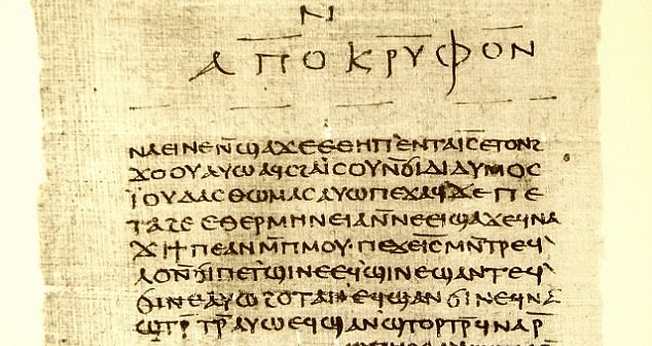 ⲁⲡⲟⲕⲣⲩⲫⲟⲛ
ⲛⲁⲉⲓⲛⲉⲛ̄ϣⲁϫⲉⲉⲑⲏⲡⲉⲛⲧⲁⲓ̅ⲥ̅ⲉⲧⲟⲛϩ
ϫⲟⲟⲩⲁⲩⲱⲁϥⲥϩⲁⲓⲥⲟⲩⲛ̄ϭⲓⲇⲓⲇⲩⲙⲟⲥ
ⲓ̈ⲟⲩⲇⲁⲥⲑⲱⲙⲁⲥⲁⲩⲱⲡⲉϫⲁϥϫⲉⲡⲉ
ⲧⲁϩⲉⲉⲑⲉⲣⲙⲏⲛⲉⲓⲁⲛ̄ⲛⲉⲉⲓϣⲁϫⲉϥⲛⲁ
ϫⲓϯⲡⲉⲁⲛⲙ̄ⲡⲙⲟⲩ·ⲡⲉϫⲉⲓ̅ⲥ̅ⲙⲛ̄ⲧⲣⲉϥ
ⲗⲟⲛ̄ϭⲓⲡⲉⲧϣⲓⲛⲉⲉϥϣⲓⲛⲉϣⲁⲛⲧⲉϥ
ϭⲓⲛⲉⲁⲩⲱϩⲟⲧⲁⲛⲉϥϣⲁⲛϭⲓⲛⲉϥⲛⲁ
ϣⲧⲣ̄ⲧⲣ̄ⲁⲩⲱⲉϥϣⲁⲛϣⲧⲟⲣⲧⲣ̄ϥⲛⲁⲣ̄